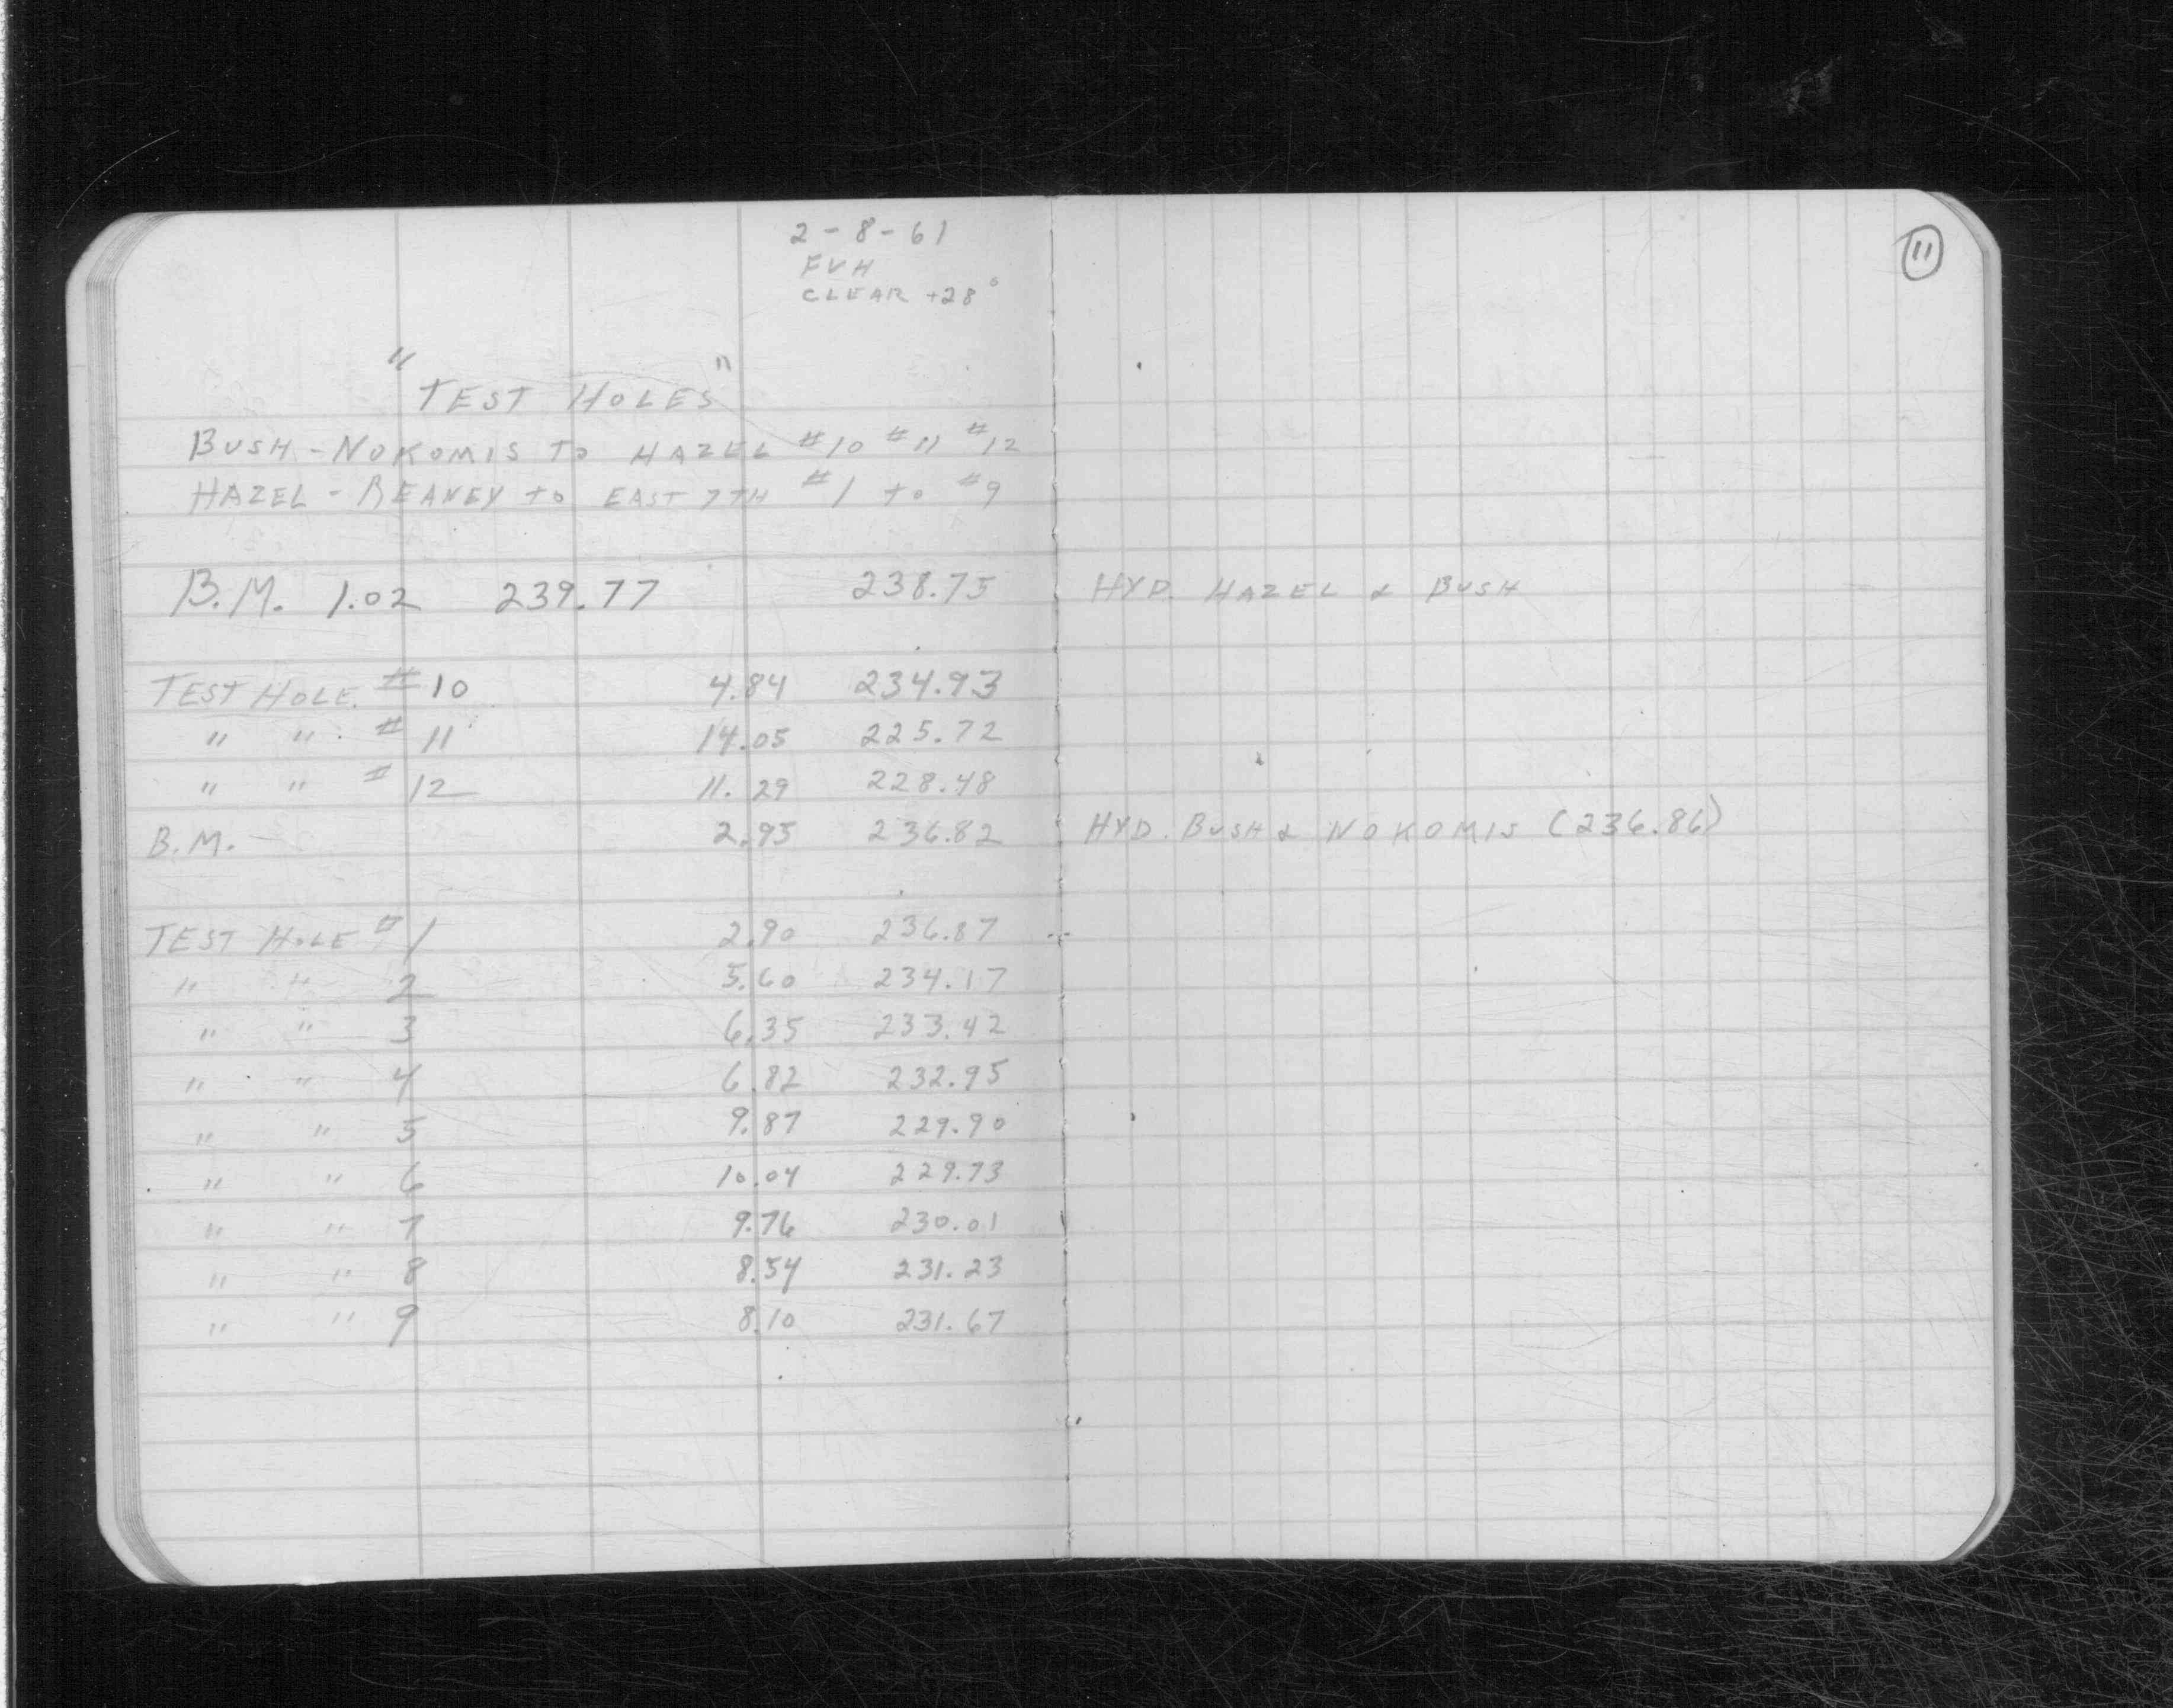 2-8-61
FVH
CLEAR +28°
11
"TEST HOLES"
BUSH - NOKOMIS TO HAZEL #10 #11 #12
HAZEL - REANEY to EAST 7TH #1 to #9
B.M. 1.02 239.77 238.75 HYD. HAZEL & BUSH
TEST HOLE #10 4.84 234.93
" " #11 14.05 225.72
" " #12 11.29 228.48
B.M. 2.95 236.82 HYD. BUSH & NOKOMIS (236.86)
TEST HOLE #1 2.90 236.87
" " 2 5.60 234.17
" " 3 6.35 233.42
" " 4 6.82 232.95
" " 5 9.87 229.90
" " 6 10.04 229.73
" " 7 9.76 230.01
" " 8 8.54 231.23
" " 9 8.10 231.67